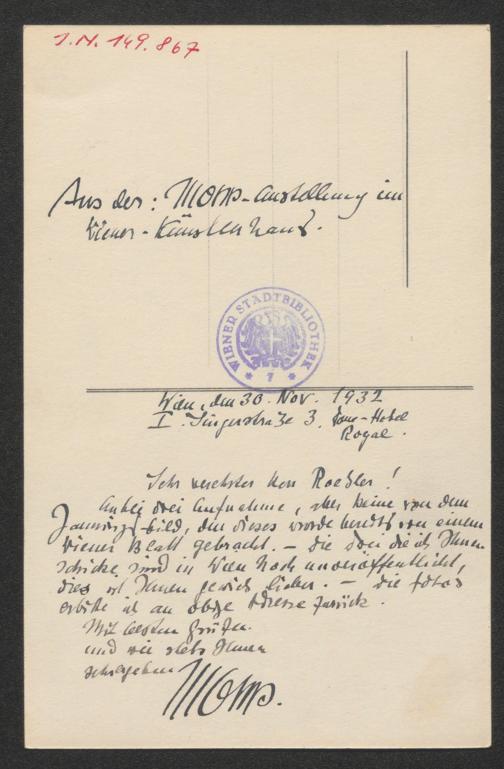 J.N. 149.867
Aus der: MOPP-Ausstellung im
Wiener-Künstlerhaus.
WIENER STADTBIBLIOTHEK
* 7 *
Wien, den 30. Nov. 1932
I. Singerstraße 3. Hotel
Royal.
Sehr verehrter Herr Roessler!
Anbei drei Aufnahme, aber keine von dem
Jannings-bild, den dieses wurde bereits von einem
Wiener Blatt gebracht. – die drei die ich Ihnen
schicke sind in Wien noch unveröffentlicht,
dies ist Ihnen gewiss lieber. – die fotos
erbitte ich an obige Adresse zurück.
Mit besten Grüßen
und wie stets Ihnen
sehr ergeben
MOPP.